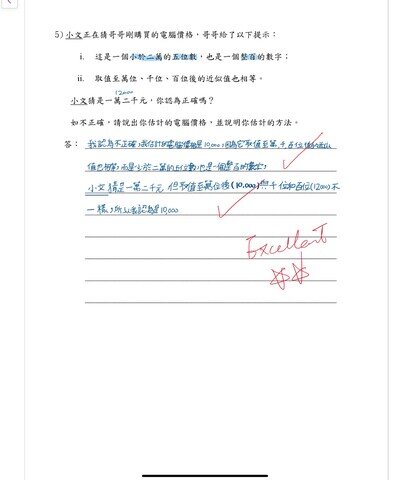 5) 小文正在猜哥哥剛購買的電腦價格，哥哥給了以下提示：
i. 這是一個小於二萬的五位數，也是一個整百的數字；
ii. 取值至萬位、千位、百位後的近似值也相等。
12000
小文猜是一萬二千元，你認為正確嗎？
如不正確，請說出你估計的電腦價格，並說明你估計的方法。
答： 我認為不正確，我估計的電腦價格是10,000，因為它取值至萬、千、百位後的近似
值也相等，而是小於二萬的五位數，也是一個整百的數字。
小文猜是一萬二千元，但取值至萬位後(10,000)和千位和百位(12000)不
一樣，所以我認為是10,000
Excellent